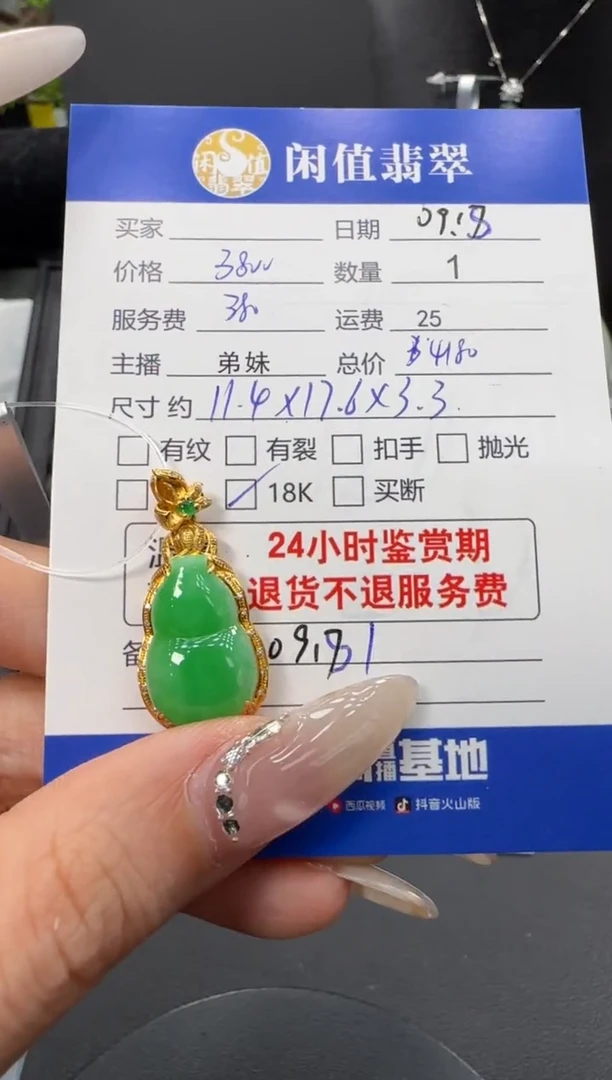 闲值翡翠
闲值翡翠
买家 日期 09.18
价格 3800 数量 1
服务费 380 运费 25
主播 弟妹 总价 $4180
尺寸约 11.4X17.6X3.3
有纹 有裂 扣手 抛光
18K 买断
24小时鉴赏期
退货不退服务费
备
播基地
西瓜视频 抖音火山版